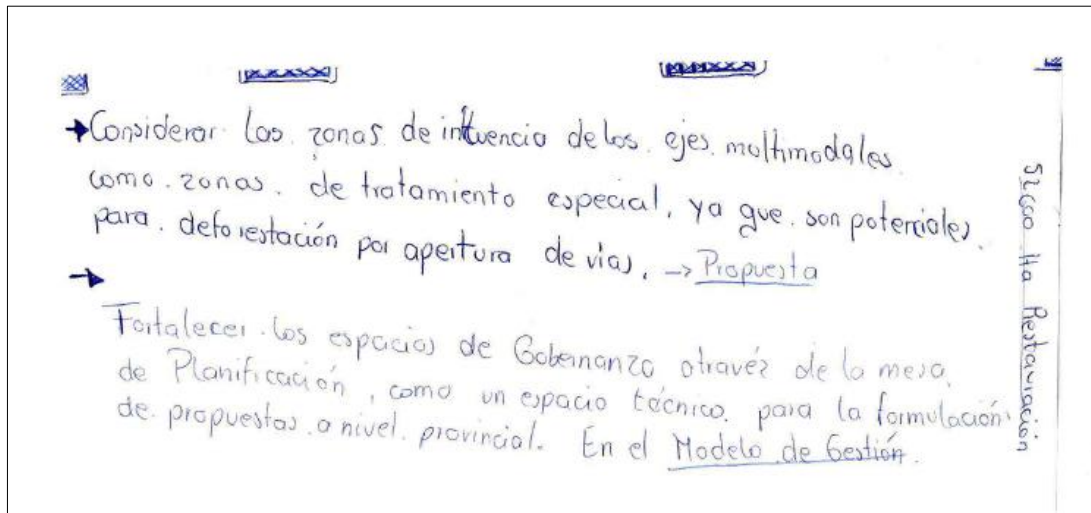 →Considerar las zonas de influencia de los ejes multimodales
como zonas de tratamiento especial, ya que son potenciales
para deforestación por apertura de vías. → Propuesta
→
Fortalecer los espacios de Gobernanza através de la mesa
de Planificación, como un espacio técnico para la formulación
de propuestas a nivel provincial. En el Modelo de Gestión.
Ha Restauración